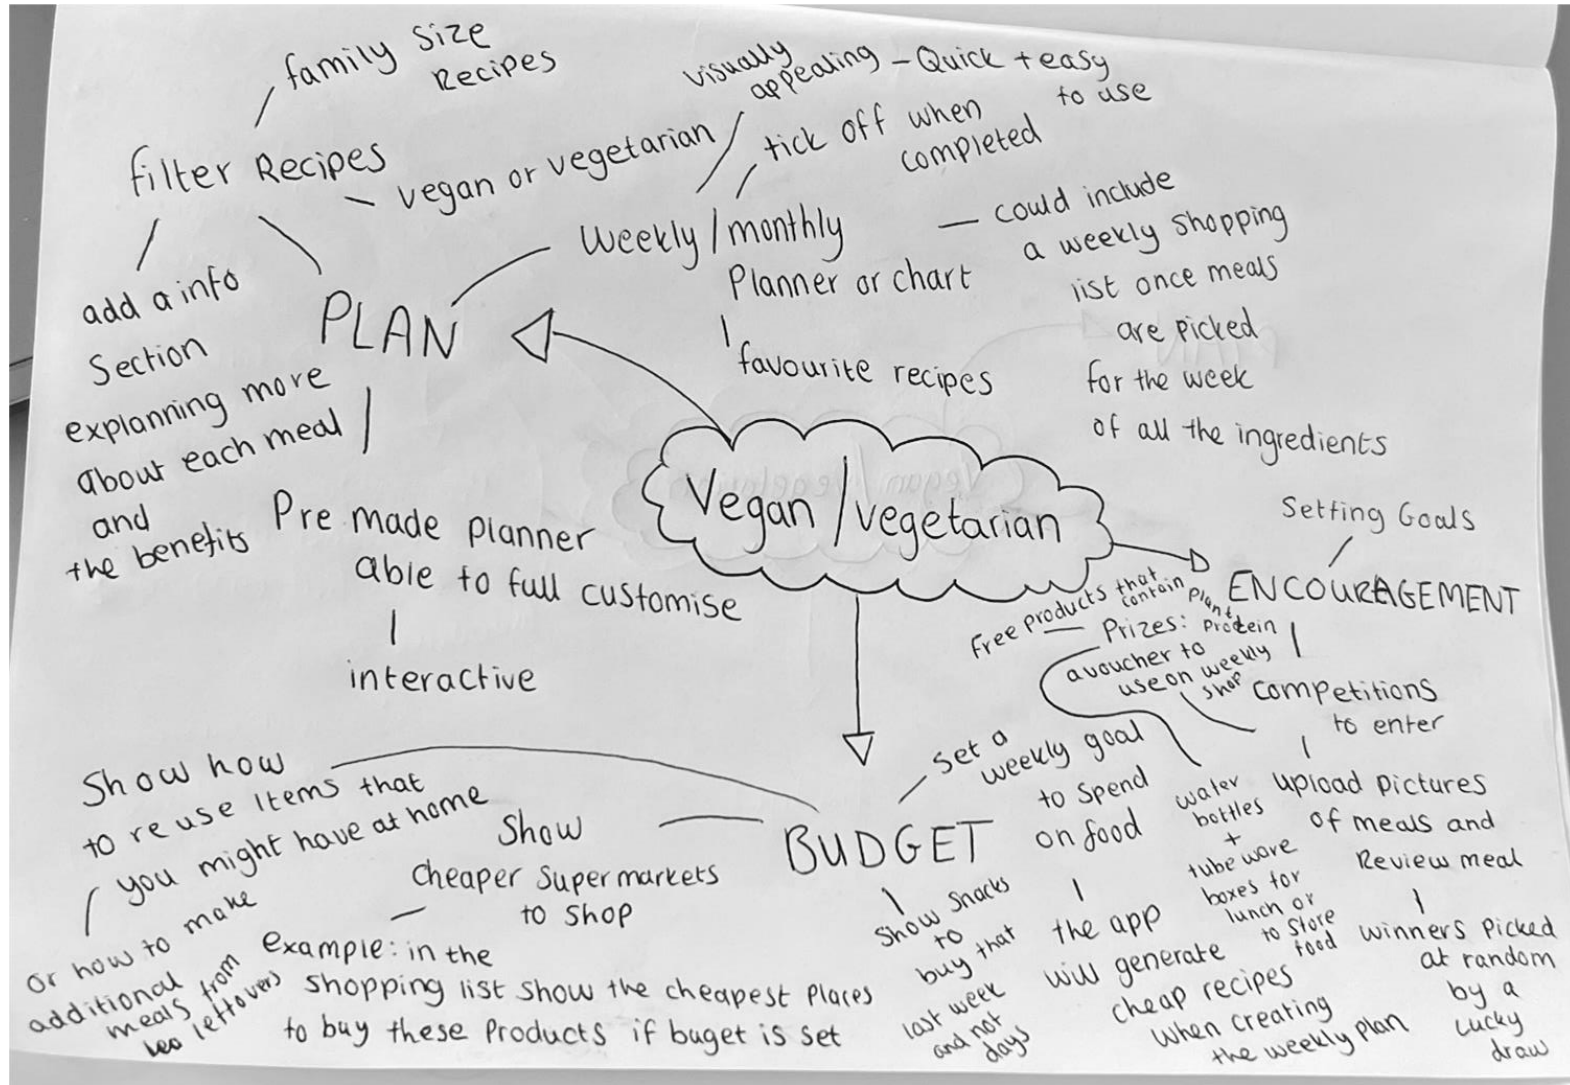 family size
Recipes
filter Recipes
vegan or vegetarian
add a info
Section
explanning more
about each meal
and
the benefits
PLAN
Weekly / monthly
Planner or chart
visually
appealing – Quick + easy
to use
tick off when
completed
could include
a weekly shopping
list once meals
are picked
for the week
of all the ingredients
favourite recipes
Pre made planner
able to full customise
interactive
Vegan / vegetarian
Setting Goals
ENCOURAGEMENT
Prizes:
Free products that
contain plant
protein
a voucher to
use on weekly
shop
water
bottles
+
tube ware
boxes for
lunch or
to store
food
Competitions
to enter
upload pictures
of meals and
Review meal
winners picked
at random
by a
Lucky
draw
BUDGET
Set a
weekly goal
to spend
on food
the app
will generate
cheap recipes
when creating
the weekly plan
Show snacks
to
buy that
last week
and not
days
Show
cheaper supermarkets
to shop
example: in the
shopping list show the cheapest places
to buy these products if buget is set
Show how
to reuse items that
you might have at home
or how to make
additional
meals from
leftovers